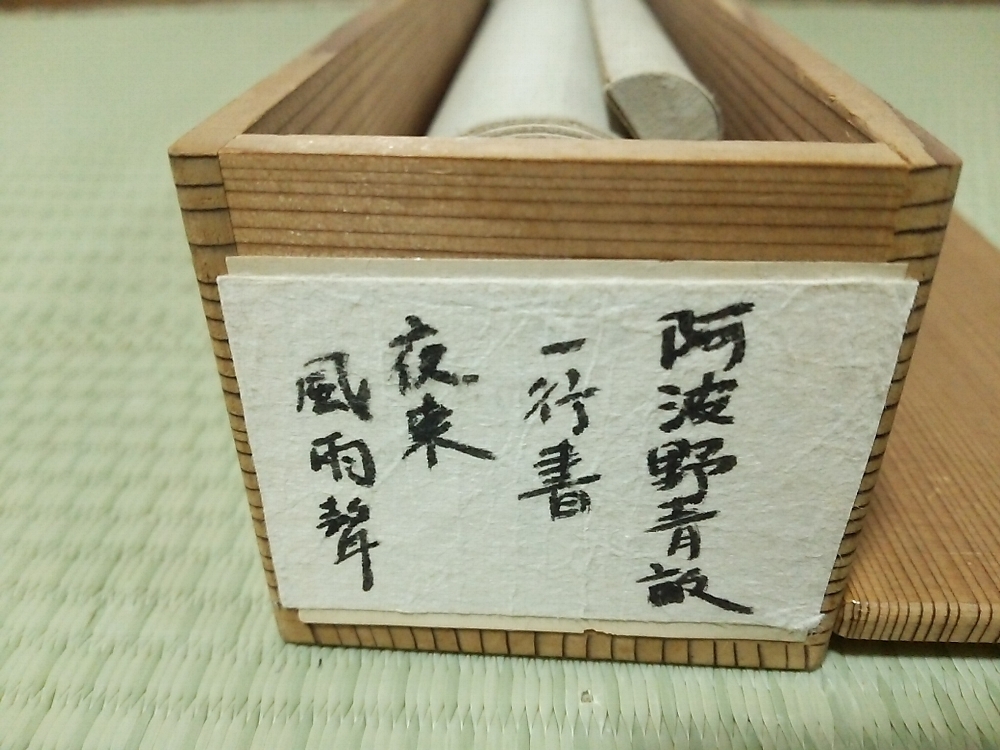 阿波野青畝
一行書
夜来
風雨聲